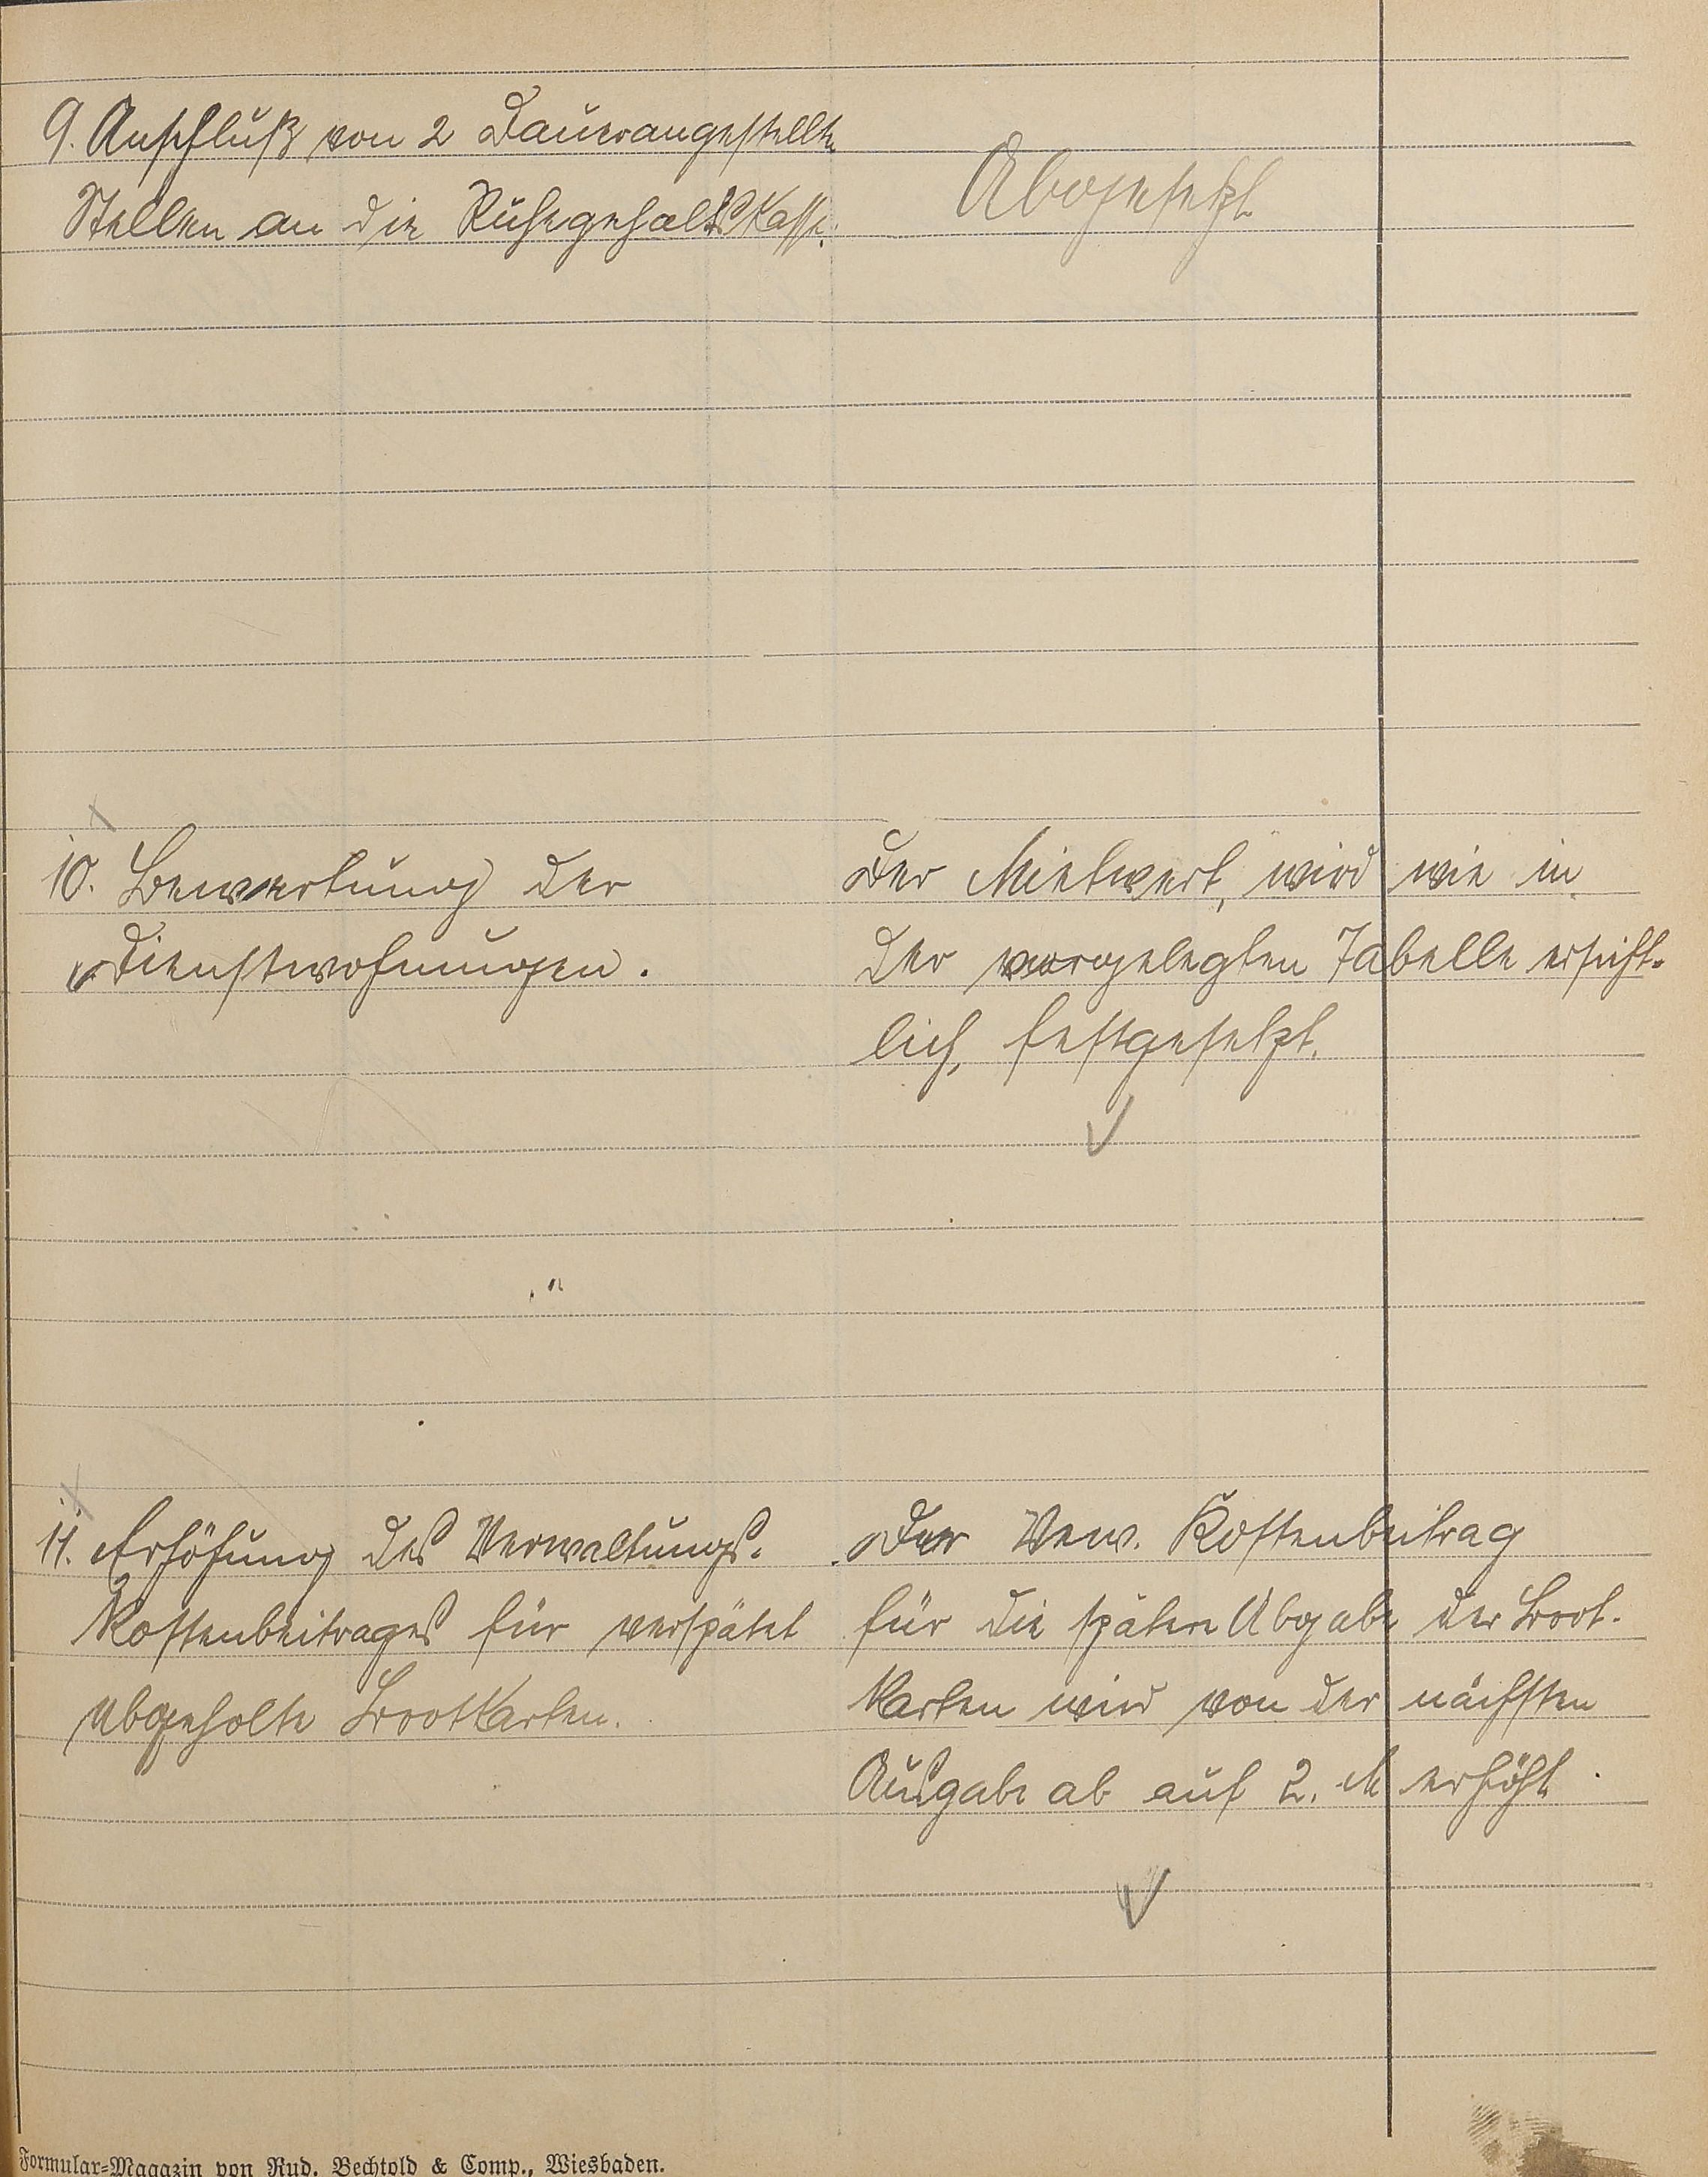 9. Anschluß von 2 Dauerangestellten
Stellen an die Ruhegehaltskasse.
Abgesetzt
10. Bewertung der
Dienstwohnungen.
Der Mietwert, wird wie in
der vorgelegten Tabelle ersicht-
lich, festgesetzt.
11. Erhöhung des Verwaltungs-
kostenbeitrages für verspätet
abgeholte Brotkarten.
Der Verw. Kostenbeitrag
für die spätere Abgabe der Brot-
karten wird von der nächsten
Ausgabe ab auf 2. M erhöht.
Formular-Magazin von Rud. Bechtold & Comp., Wiesbaden.